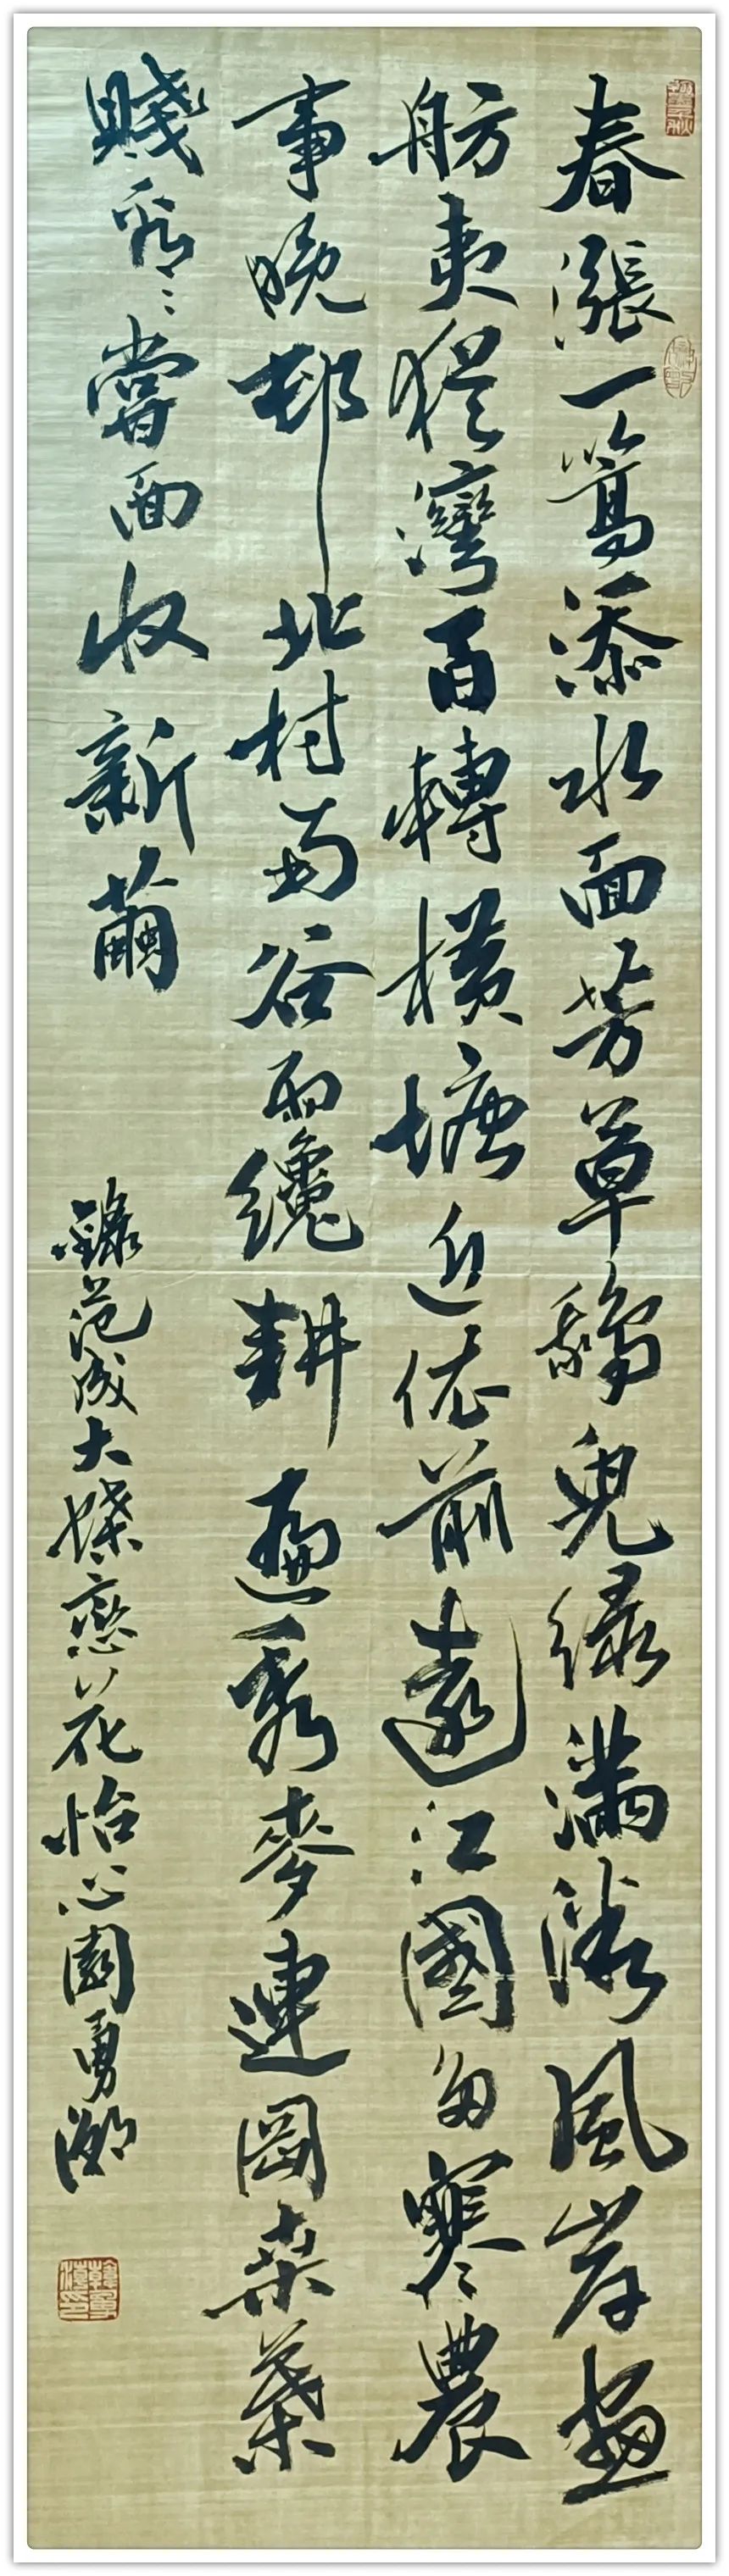 春漲一篙添水面芳草鵝兒緑滿微風岸畫
舫夷猶灣百轉橫塘近依前遠江國多寒農
事晚邨北村南谷雨纔耕遍秀麥連岡桑葉
賤看〻嘗面收新繭
錄范成大蝶戀花怡心園勇